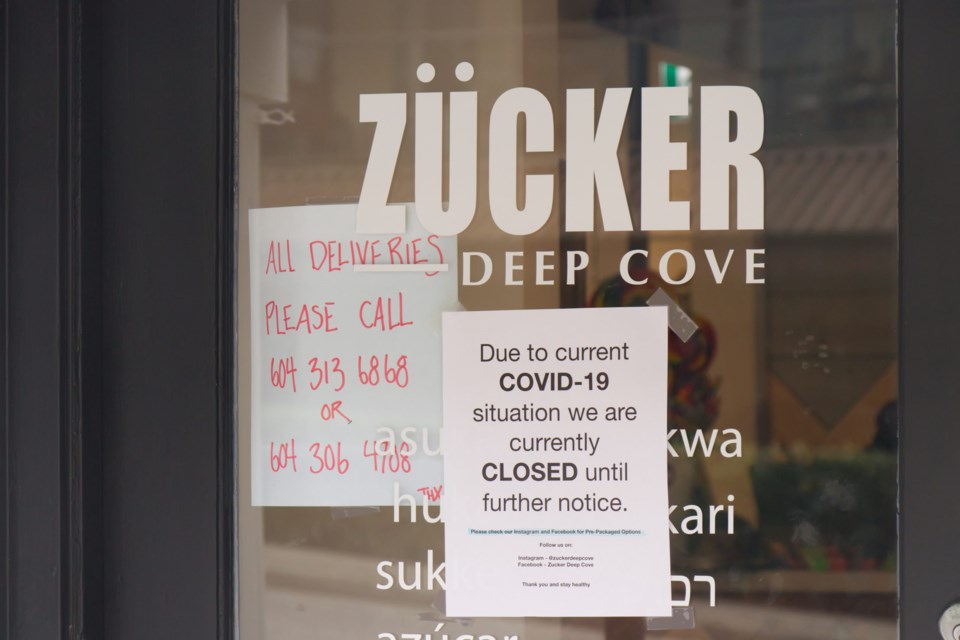 ZÜCKER
DEEP COVE
ALL DELIVERIES
PLEASE CALL
604 313 6868
OR
604 306 4708
THX
Due to current
COVID-19
situation we are
currently
CLOSED until
further notice.
Please check our Instagram and Facebook for Pre-Packaged Options
Follow us on:
Instagram - @zuckerdeepcove
Facebook - Zucker Deep Cove
Thank you and stay healthy
asu
kwa
hu
kari
suk
azúcar